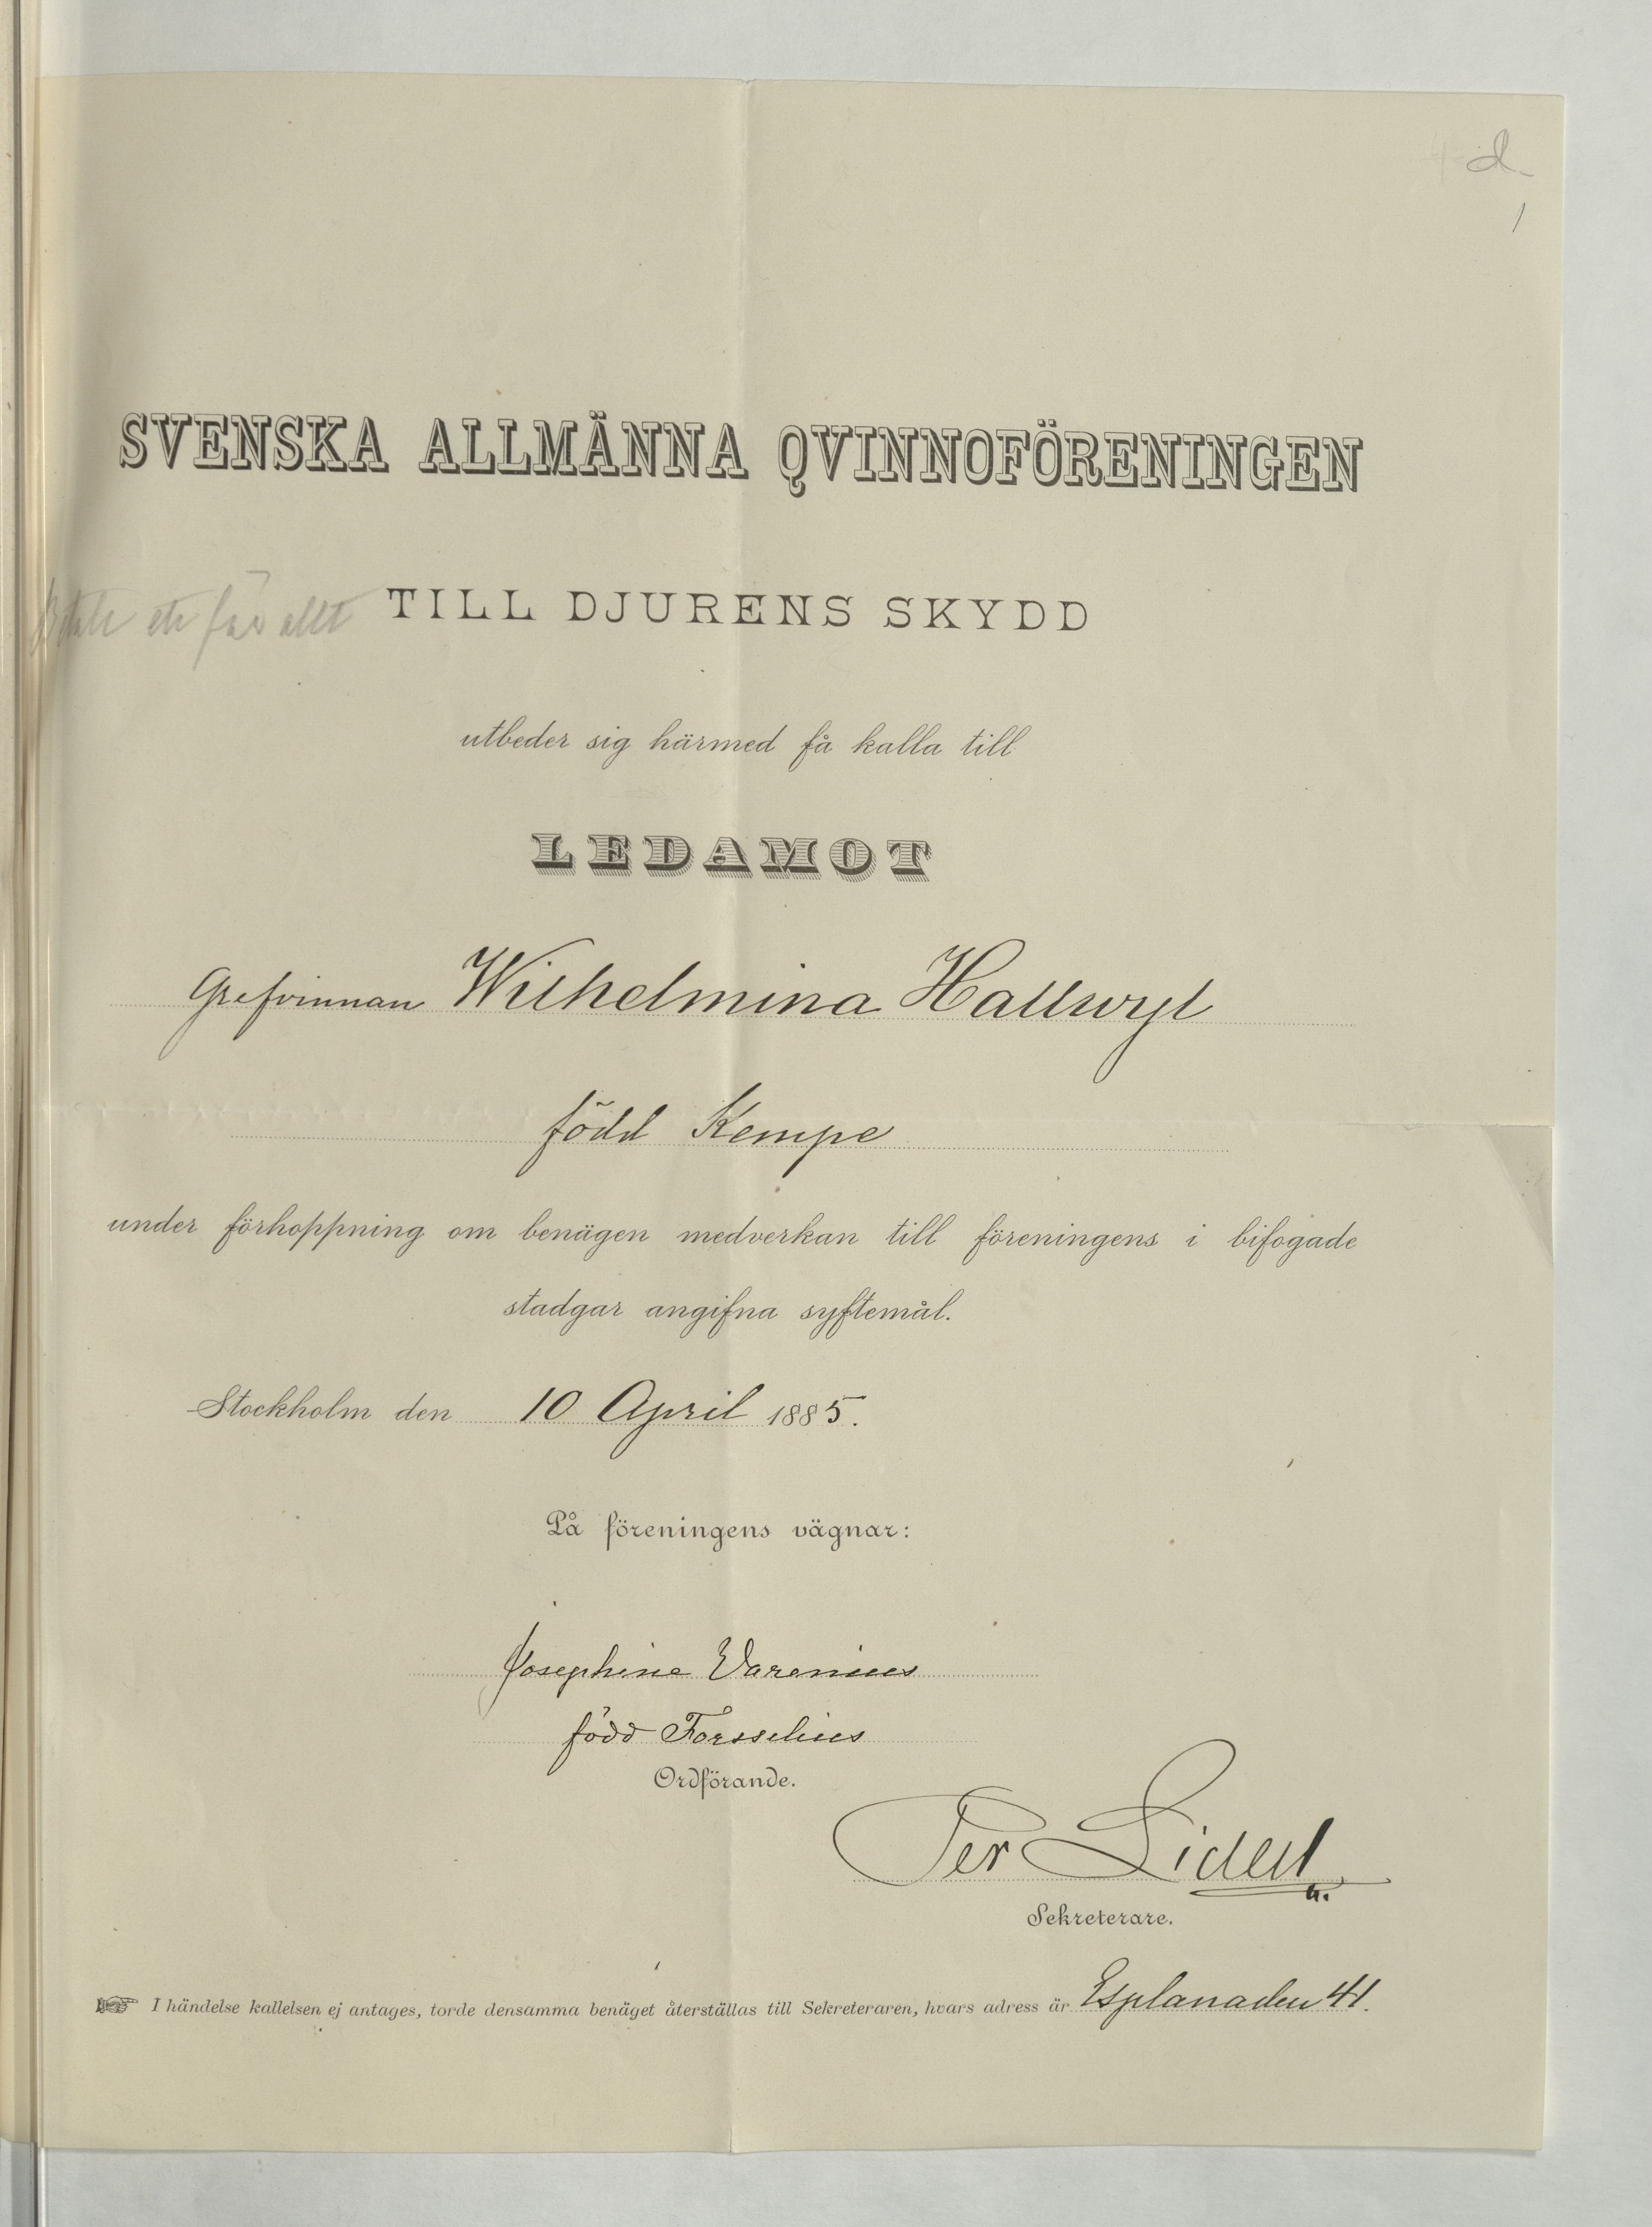 d.
1
SVENSKA ALLMÄNNA QVINNOFÖRENINGEN
för allt
TILL DJURENS SKYDD
utbeder sig härmed få kalla till
LEDAMOT
Grefvinnan Wilhelmina Hallwyl
född Kempe
under förhoppning om benägen medverkan till föreningens i bifogade
stadgar angifna syftemål.
Stockholm den 10 April 1885.
På föreningens vägnar:
Josephine Varenius
född Forsselius
Ordförande.
Per Lidell
Sekreterare.
☞ I händelse kallelsen ej antages, torde densamma benäget återställas till Sekreteraren, hvars adress är Esplanaden 41.